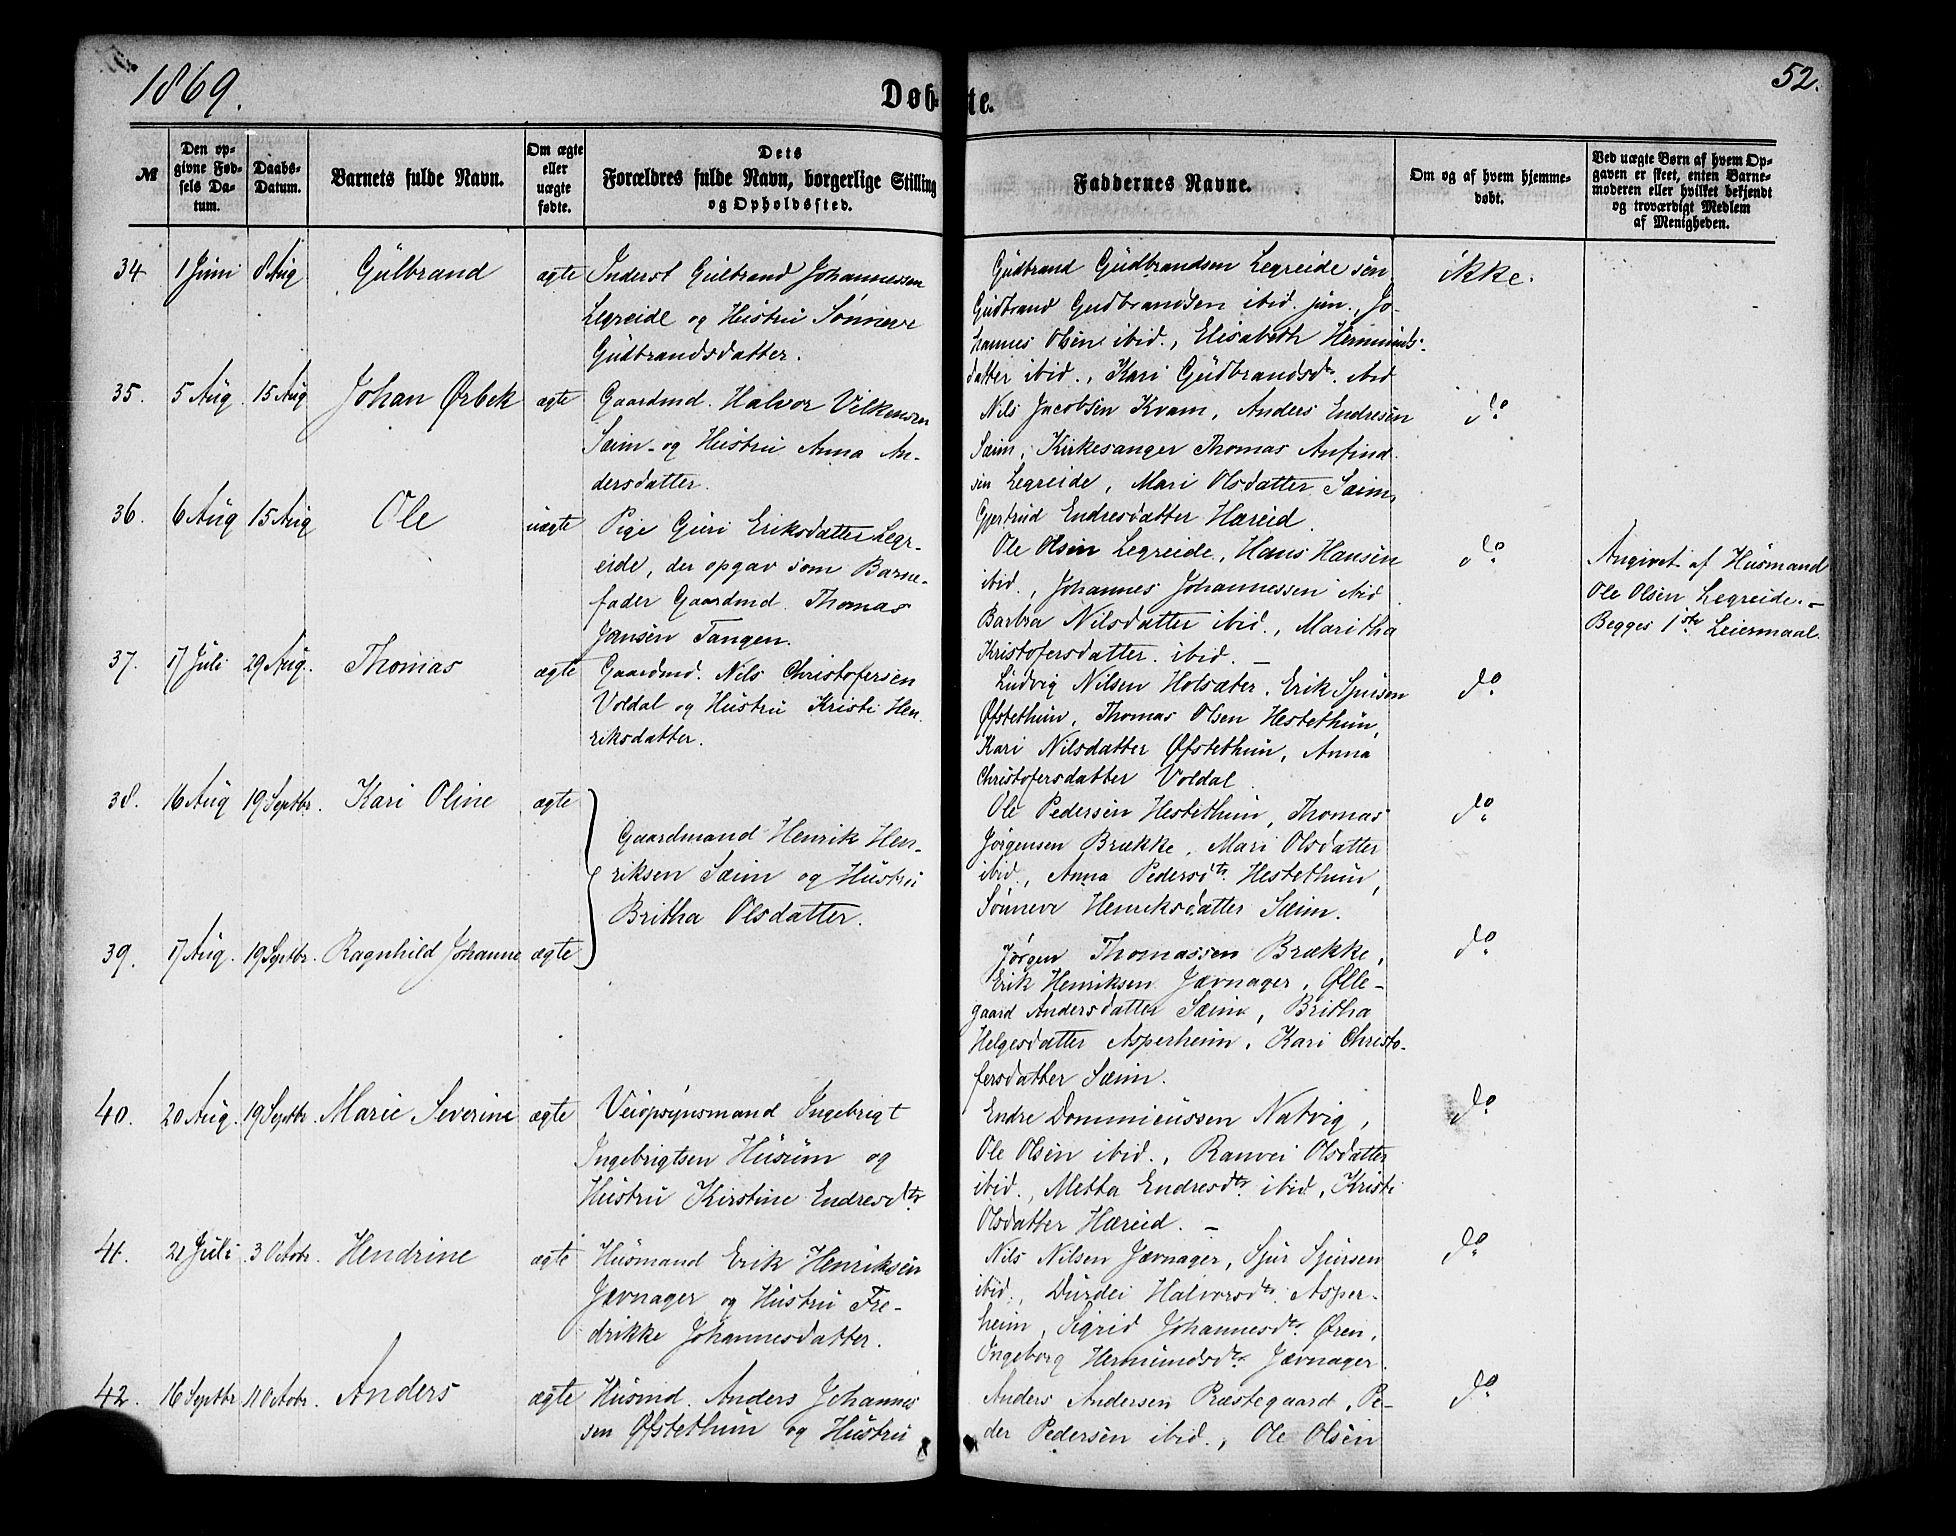 1869.
Døb-te.
52.
№
Den op-
givne Fød-
sels Da-
tum.
Daabs-
Datum.
Barnets fulde Navn.
Om ægte
eller
uægte
fødte.
Dets
Forældres fulde Navn, borgerlige Stilling
og Opholdssted.
Faddernes Navne.
Om og af hvem hjemme-
døbt.
Ved uægte Børn af hvem Op-
gaven er skeet, enten Barne-
moderen eller hvilket bekjendt
og troværdigt Medlem
af Menigheden.
34 1 Juni 8 Aug Gulbrand ægte
Inderst Gulbrand Johannessen
Legreide og Hustru Sønneve
Gudbrandsdatter.
Gudbrand Gudbrandsen Legreide sen.
Gudbrand Gudbrandsen ibid. jun., Jo-
hannes Olsen ibid., Elisabeth Hermunds-
datter ibid., Kari Gudbrandsdr. ibid
ikke.
35. 5 Aug. 15 Aug Johan Ørbek ægte
Gaardmd. Halvor Vilkensen
Sæim og Hustru Anna An-
dersdatter.
Nils Jacobsen Kvam, Anders Endresen
Sæim, Kirkesanger Thomas Anfind-
sen Legreide, Mari Olsdatter Sæim,
Gjertrud Endresdatter Hæreid.
do.
36. 6 Aug 15 Aug Ole uægte
Pige Guri Eriksdatter Legr-
eide, der opgav som Barne-
fader Gaardmd. Thomas
Jansen Tangen.
Ole Olsen Legreide, Hans Hansen
ibid., Johannes Johannessen ibid.
Barbra Nilsdatter ibid., Maritha
Kristofersdatter ibid. —
do.
Angivet af Husmand
Ole Olsen Legreide. —
Begges 1ste Leiermaal.
37. 17 Juli 29 Aug. Thomas ægte
Gaardmd. Nils Christofersen
Voldal og Hustru Kristi Hen-
riksdatter.
Ludvig Nilsen Hotsæter, Erik Sjursen
Øfstethun, Thomas Olsen Hestethun,
Kari Nilsdatter Øfstethun, Anna
Christofersdatter Voldal.
do.
38. 16 Aug 19 Septbr. Kari Oline ægte
Gaardmand Henrik Hen-
riksen Sæim og Hustru
Britha Olsdatter.
Ole Pedersen Hestethun, Thomas
Jørgensen Brække, Mari Olsdatter
ibid., Anna Pedersdtr. Hestethun,
Sønneve Henriksdatter Sæim.
do.
39. 17 Aug. 19 Septbr. Ragnhild Johanne ægte
Jørgen Thomassen Brække,
Erik Henriksen Jævnager, Ølle-
gaard Andersdatter Sæim, Britha
Helgesdatter Asperheim, Kari Christo-
fersdatter Sæim.
do.
40. 20 Aug. 19 Septbr. Marie Severine ægte
Veiopsynsmand Ingebrigt
Ingebrigtsen Husum og
Hustru Kirstine Endresdtr.
Endre Dominicussen Natvig,
Ole Olsen ibid., Ranvei Olsdatter
ibid., Metta Endresdtr. ibid., Kristi
Olsdatter Hæreid. —
do.
41. 21 Juli 3 Octobr. Hendrine ægte
Husmand Erik Henriksen
Jævnager og Hustru Fre-
drikke Johannesdatter.
Nils Nilsen Jævnager, Sjur Sjursen
ibid., Durdei Halvorsdtr. Asper-
heim, Sigrid Johannesdtr. Øren,
Ingeborg Hermundsdtr. Jævnager.
do.
42. 16 Septbr. Octobr. Anders ægte
Husmd. Anders Johannes-
sen Øfstethun og Hustru
Anders Andersen Præstegaard, Pe-
der Pedersen ibid., Ole Olsen
do.